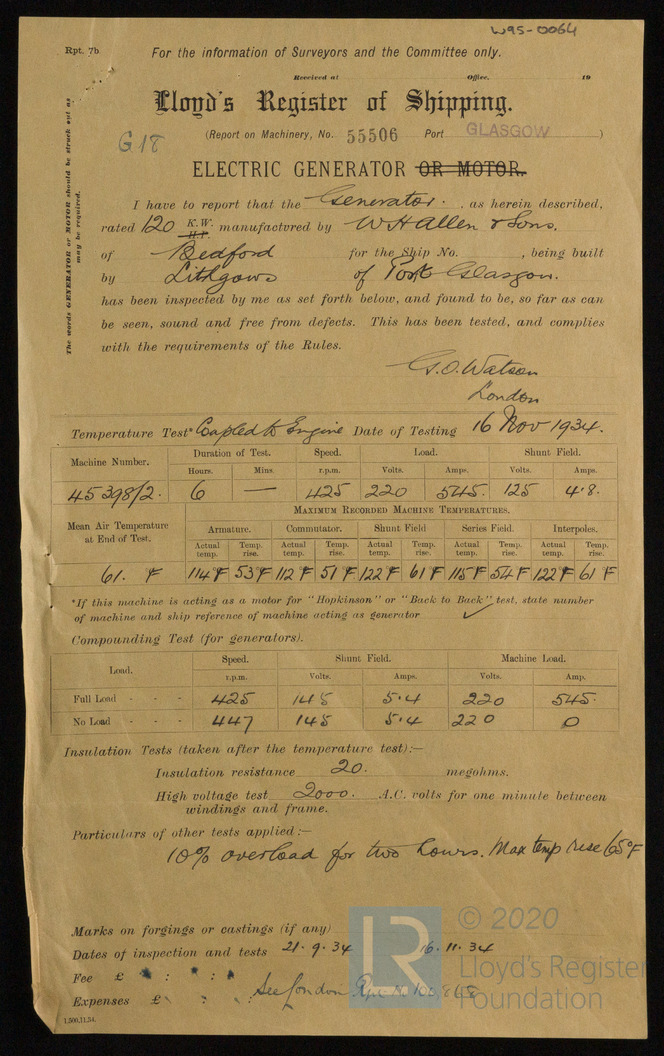 W95-0064
Rpt. 7b
For the information of Surveyors and the Committee only.
Received at Office. 19
Lloyd's Register of Shipping.
G18
(Report on Machinery, No. 55506 Port GLASGOW )
The words GENERATOR or MOTOR should be struck out as may be required.
ELECTRIC GENERATOR OR MOTOR.
I have to report that the Generator. , as herein described,
rated 120 K.W. H.P. manufactured by W H Allen & Sons.
of Bedford for the Ship No. , being built
by Lithgows of Port Glasgow.
has been inspected by me as set forth below, and found to be, so far as can
be seen, sound and free from defects. This has been tested, and complies
with the requirements of the Rules.
G.O. Watson
London
Temperature Test* Coupled to Engine Date of Testing 16 Nov 1934.
Machine Number. Duration of Test. Speed. Load. Shunt Field.
Hours. Mins. r.p.m. Volts. Amps. Volts. Amps.
45398/2. 6 — 425 220 545. 125 4.8.
Mean Air Temperature at End of Test. MAXIMUM RECORDED MACHINE TEMPERATURES.
Armature. Commutator. Shunt Field Series Field. Interpoles.
Actual temp. Temp. rise. Actual temp. Temp. rise. Actual temp. Temp. rise. Actual temp. Temp. rise. Actual temp. Temp. rise.
61. °F 114°F 53°F 112°F 51°F 122°F 61°F 115°F 54°F 122°F 61°F
*If this machine is acting as a motor for "Hopkinson" or "Back to Back" test, state number
of machine and ship reference of machine acting as generator ✓
Compounding Test (for generators).
Load. Speed. Shunt Field. Machine Load.
r.p.m. Volts. Amps. Volts. Amp.
Full Load - - - 425 145 5.4 220 545.
No Load - - - 447 145 5.4 220 0
Insulation Tests (taken after the temperature test):—
Insulation resistance 20. megohms.
High voltage test 2000. A.C. volts for one minute between
windings and frame.
Particulars of other tests applied:—
10% overload for two hours. Max temp rise 65°F
Marks on forgings or castings (if any)
Dates of inspection and tests 21.9.34 16.11.34
Fee £ : :
Expenses £ : : See London Rpt No
1,500,11,34.
LR
© 2020
Lloyd's Register
Foundation